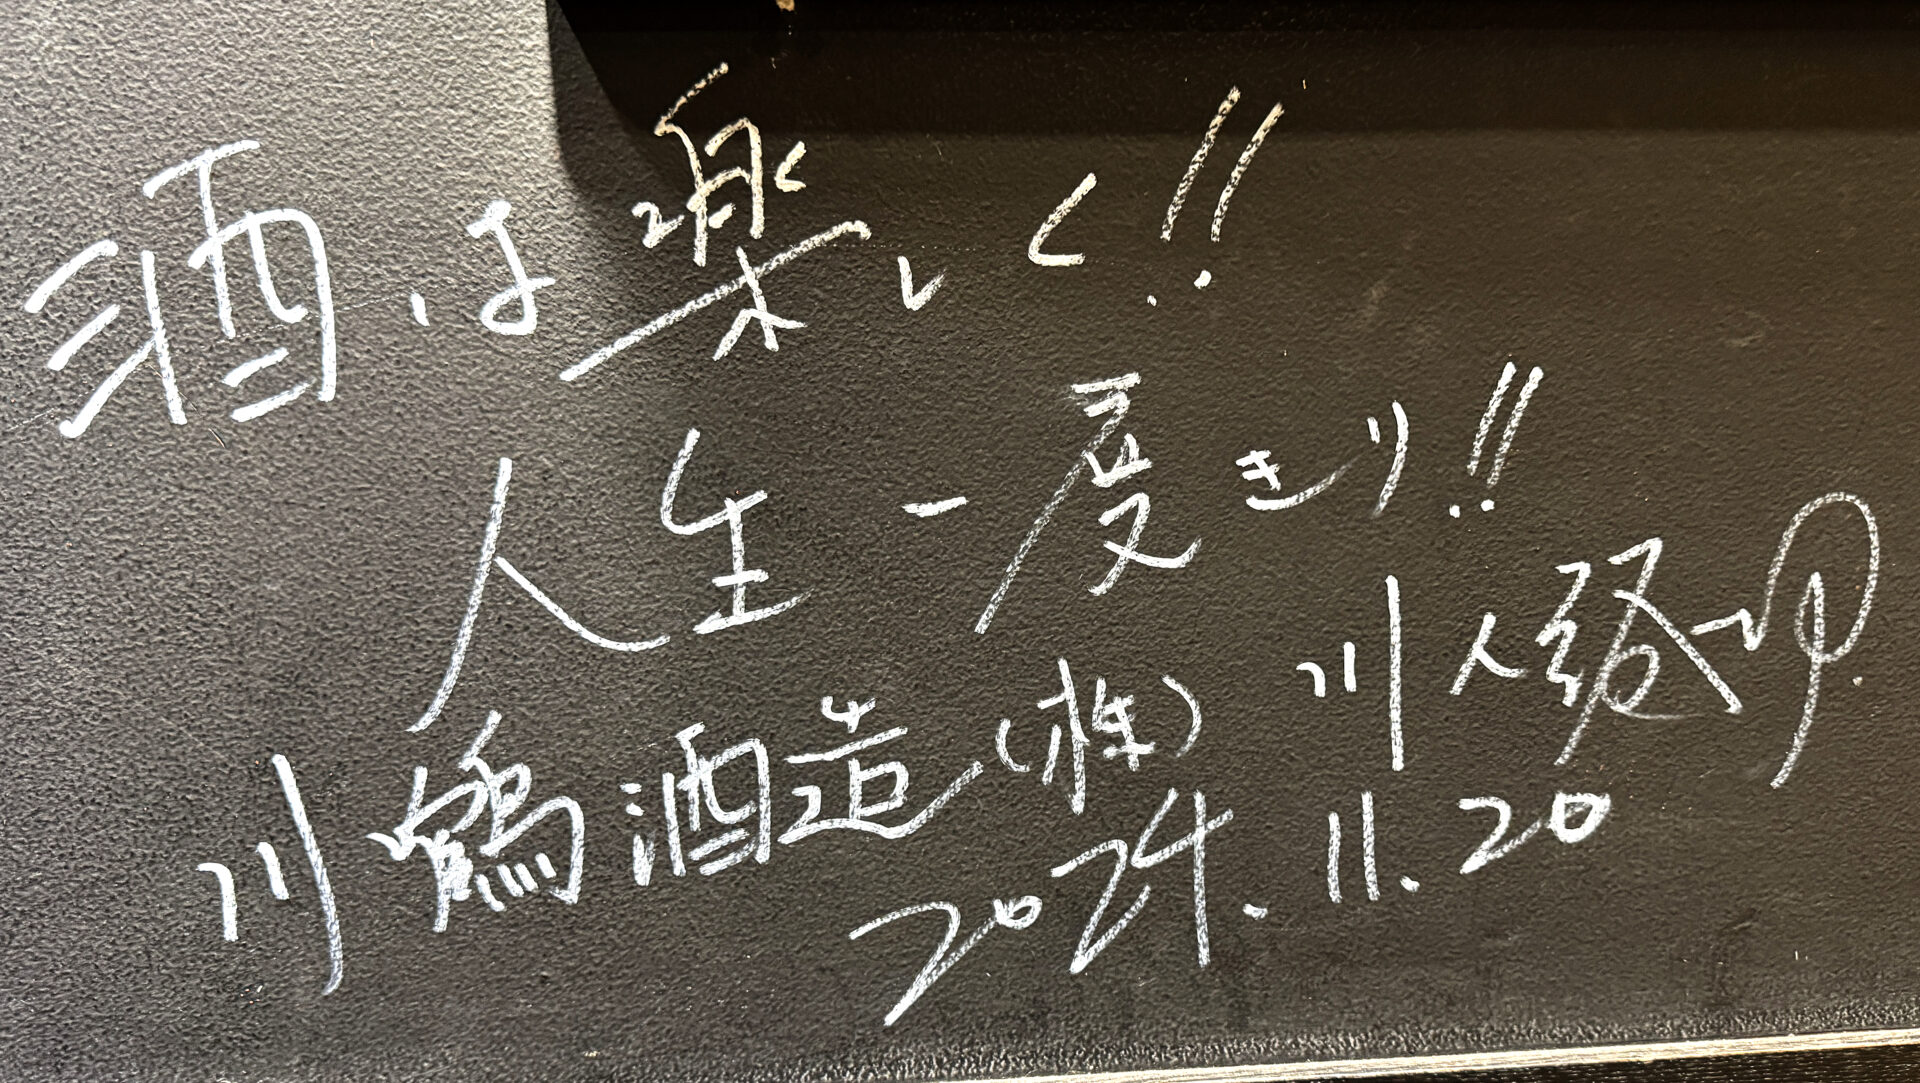 酒は楽しく!!
人生一度きり!!
川鶴酒造(株) 川人
2024.11.20